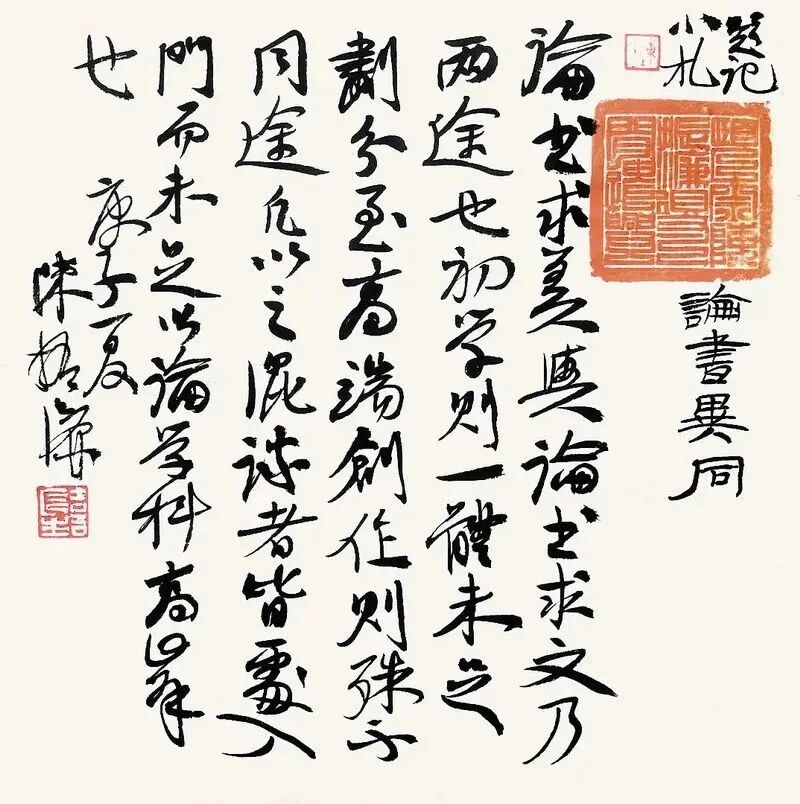 題记
小札
論書異同
論书求美與論书求文乃
两途也初学则一體未足
劃分至高端創作则殊不
同途凡以之混談者皆入
門而未足以論学科高峯
也
庚子夏
陳振濂